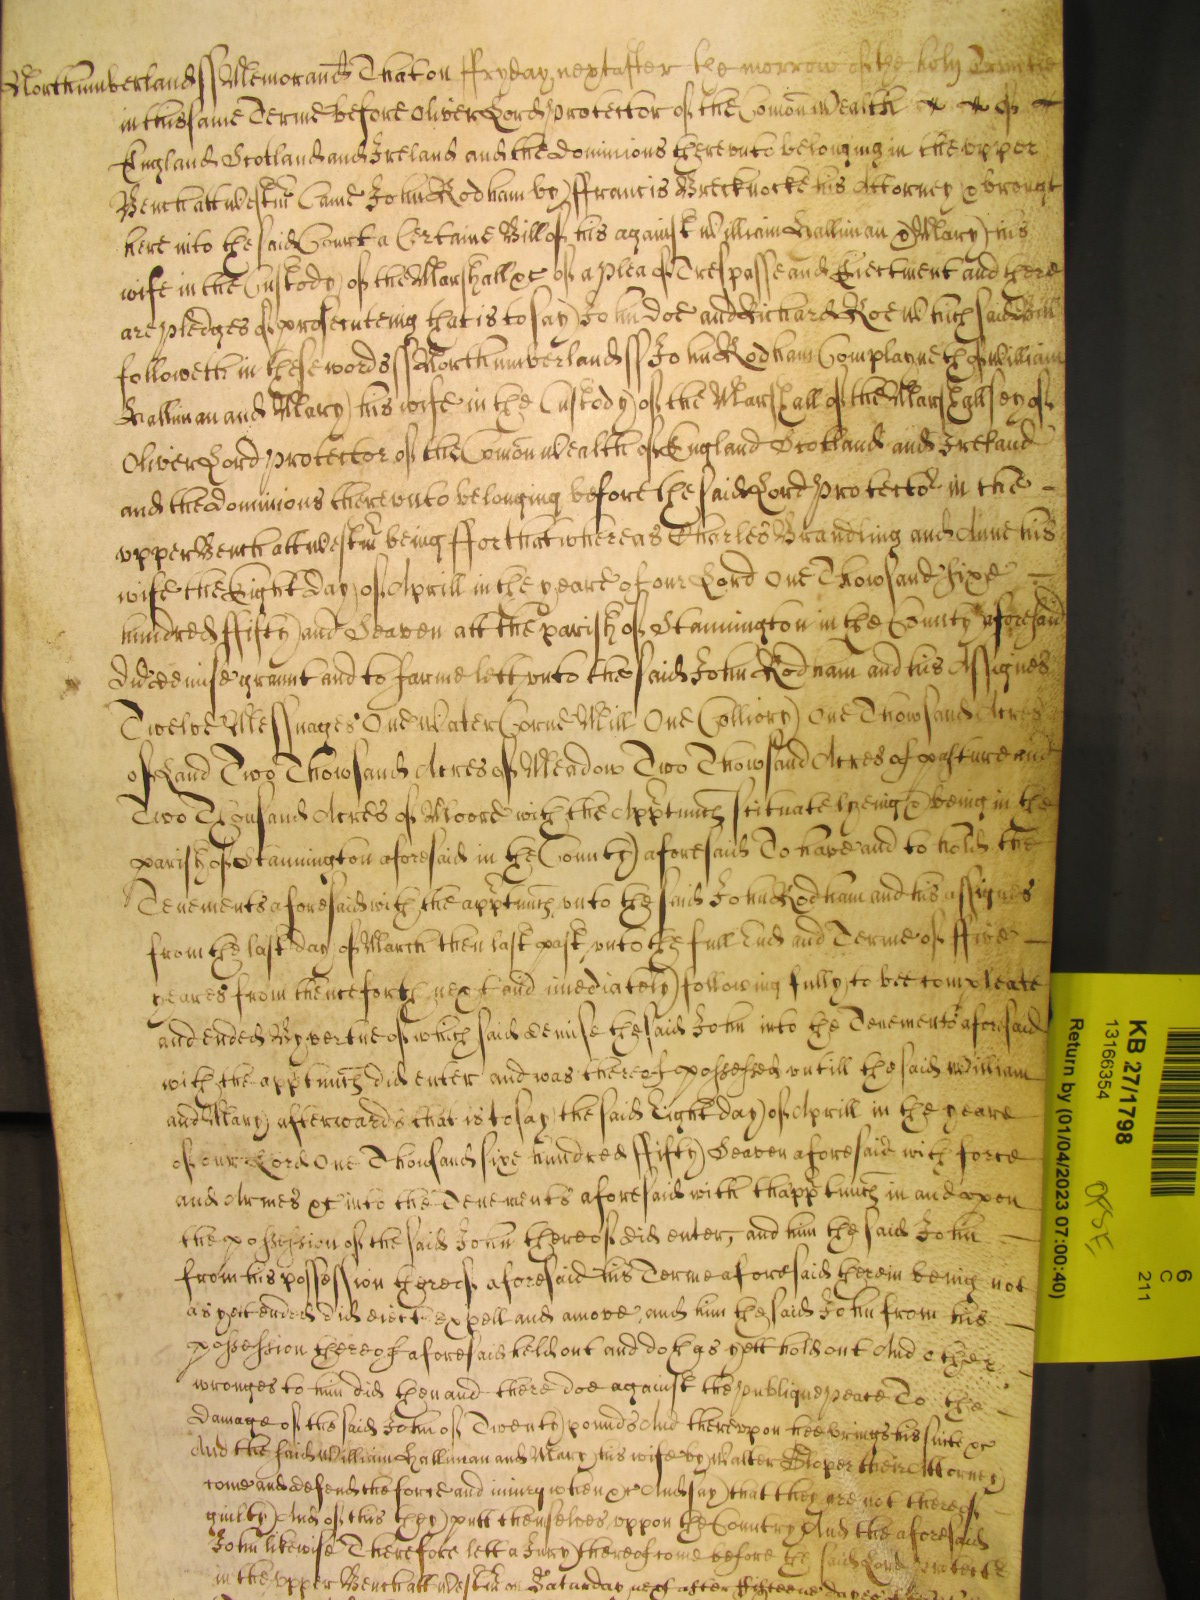 Northumberland ss Memorand That on ffryday next after the morrow of the holy Trinitie
in this same Terme before Oliver Lord Protector of the Comon Wealth of
England Scotland and Ireland and the dominions thereunto belonging in the upper
Bench att Westmr Came John Rodham by ffrancis Brecknocke his Attorney & brought
here into the said Court a Certaine Bill of his against William Halliman & Mary his
wife in the Custody of the Marshall &c of a plea of Trespasse and Eiectment and there
are pledges of prosecuteing that is to say John doe and Richard Roe Which said Bill
followeth in these words ss Northumberland ss John Rodham Complayneth of William
Halliman and Mary his wife in the Custody of the Marshall of the Marshallsey of
Oliver Lord Protector of the Comon Wealth of England Scotland and Ireland
and the dominions thereunto belonging before the said Lord Protector in the
upper Bench att Westmr being ffor that whereas Charles Brandling and Anne his
wife the Eight day of Aprill in the yeare of our Lord One Thowsand Sixe
hundred ffifty and Seaven att the parish of Stannington in the County aforesaid
did demise graunt and to farme lett unto the said John Rodham and his Assignes
Twelve Messuages One Water Corne Mill One Colliory One Thowsand Acres
of Land Two Thowsand Acres of Meadow Two Thowsand Acres of pasture and
Two Thousand Acres of Moore with the Apptnncs scituate lyeing & being in the
parish of Stannington aforesaid in the County aforesaid To have and to hold the
Tenements aforesaid with the apptnncs unto the said John Rodham and his assignes
from the last day of March then last past unto the full End and Terme of ffive
yeares from thenceforth next and imediately following fully to bee compleate
and ended By vertue of which said demise the said John into the Tenements aforesaid
with the apptnncs did enter and was thereof possessed untill the said William
and Mary afterwards that is to say the said Eight day of Aprill in the yeare
of our Lord One Thowsand sixe hundred ffifty Seaven aforesaid with force
and Armes &c into the Tenements aforesaid with thapptnncs in and upon
the possession of the said John thereof did enter, and him the said John
from his possession thereof aforesaid his Terme aforesaid therein being not
as yett ended did eiect expell and amove, and him the said John from his
possession thereof aforesaid held out and doth as yett hold out And other
wronges to him did then and there doe against the publique peace To the
damage of the said John of Twenty pounds And thereupon hee brings his suite &c
And the said William Halliman and Mary his wife by Walter Sloper their Attorney
come and defend the force and iniury when &c And say that they are not thereof
guilty And of this they putt themselves uppon the Country And the aforesaid
John likewise Therefore lett a Jury thereof come before the said Lord Protector
in the upper Bench att Westmr on Saturday next after ffifteene dayes of
KB 27/1798
13166354
Return by (01/04/2023 07:00:40)
6
C
211